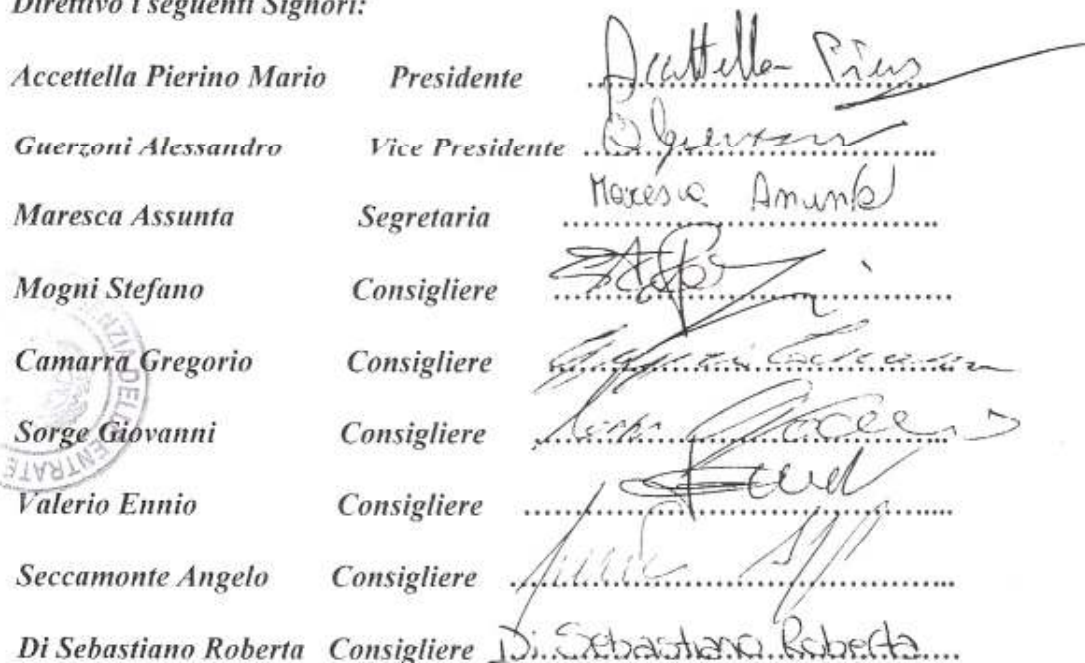 Direttivo i seguenti Signori:
Accettella Pierino Mario Presidente Accettella Piero
Guerzoni Alessandro Vice Presidente Guerzoni
Maresca Assunta Segretaria Maresca Assunta
Mogni Stefano Consigliere
Camarra Gregorio Consigliere
Sorge Giovanni Consigliere
Valerio Ennio Consigliere
Seccamonte Angelo Consigliere
Di Sebastiano Roberta Consigliere Di Sebastiano Roberta
ENTRATE